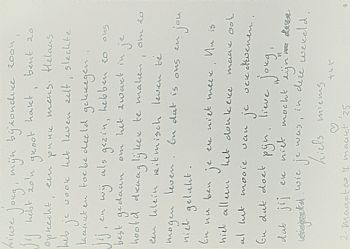 Lieve Joury, mijn bijzondere zoon,
Jij hebt zo'n groot hart, bent zo
oprecht, een pure mens. Helaas
heb je voor het leven zelf, slechte
kaarten toebedeeld gekregen.
Jij, en wij als gezin, hebben zo ons
best gedaan om het zwart in je
hoofd draaglijker te maken, om zo
een klein ritmisch leven te
mogen leven. En dat is ons en jou
niet gelukt.
En nu ben je er niet meer. Nu is
niet alleen het donkere maar ook
al het mooie van je verdwenen.
En dat doet pijn, lieve Joury,
dat jij er niet mocht zijn
wie je was, in deze wereld.
Liefs
maart 25